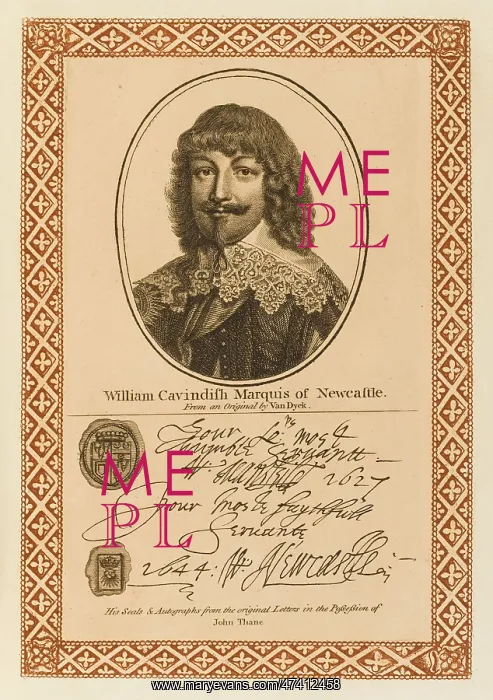 ME
PL
William Cavindiſh Marquis of Newcaſtle.
From an Original by Van Dyck.
Your Lo:ps most
Servant
ME
1627
PL
Your moste faythfull
Servante
1644: W: Newcastle
His Seals & Autographs from the original Letters in the Poſseſsion of
John Thane
www.maryevans.com/47412458